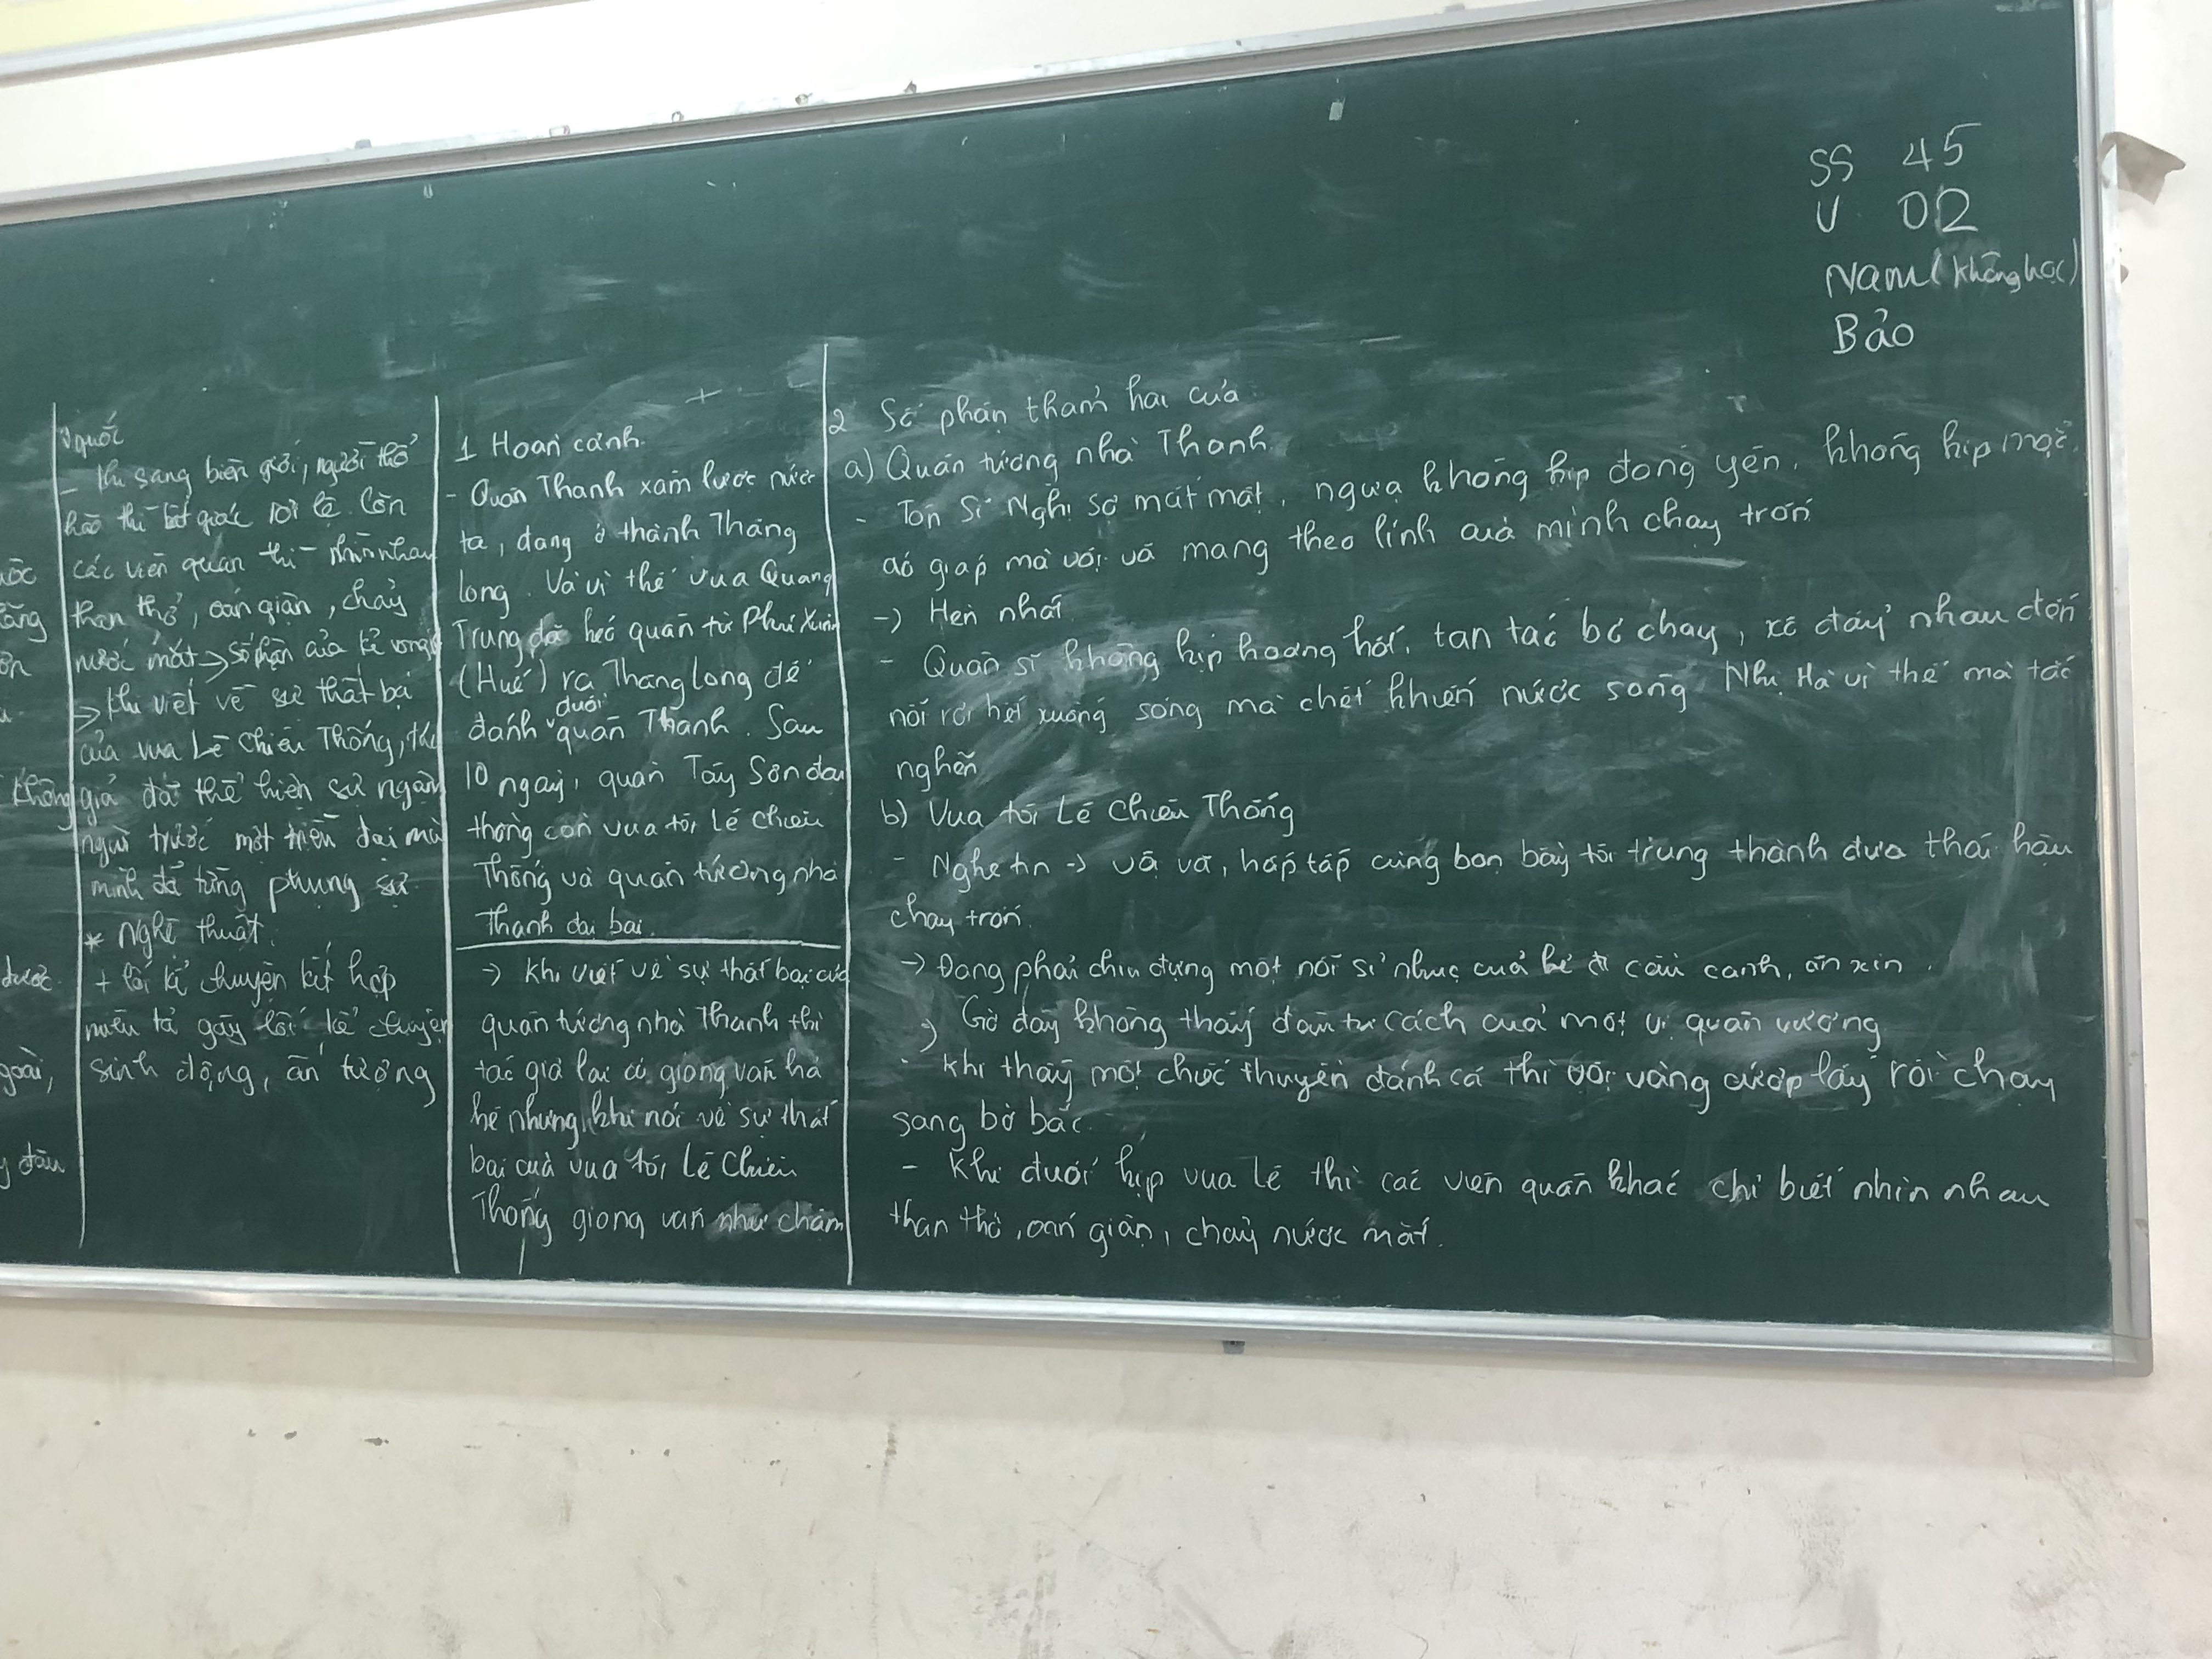 SS 45
V 02
Nam (không học)
Bảo
uốc
ăng
ôn
không
được
goài,
đâu
người
- Khi sang biên giới, người thổ
hào thì bất giác rơi lệ. Còn
các viên quan thì nhìn nhau
than thở, oán giận, chảy
nước mắt → số phận của kẻ vong
→ Khi viết về sự thất bại
của vua Lê Chiêu Thống, tác
giả đã thể hiện sự ngậm
ngùi trước một triều đại mà
mình đã từng phụng sự
* Nghệ thuật.
+ lối kể chuyện kết hợp
miêu tả gây lối kể chuyện
sinh động, ấn tượng
1 Hoàn cảnh.
- Quân Thanh xâm lược nước
ta, đang ở thành Thăng
long. Và vì thế vua Quang
Trung đã kéo quân từ Phú Xuân
(Huế) ra Thăng Long để
đuổi
đánh quân Thanh. Sau
10 ngày, quân Tây Sơn đại
thắng còn vua tôi Lê Chiêu
Thống và quân tướng nhà
Thanh đại bại.
→ Khi viết về sự thất bại của
quân tướng nhà Thanh thì
tác giả lại có giọng văn hả
hê nhưng khi nói về sự thất
bại của vua tôi Lê Chiêu
Thống giọng văn như chậm
2 Số phận thảm hại của
a) Quân tướng nhà Thanh
- Tôn Sĩ Nghị sợ mất mật, ngựa không kịp đóng yên, không kịp mặc
áo giáp mà vội vã mang theo lính của mình chạy trốn
→ Hèn nhát
- Quân sĩ không kịp hoảng hốt, tan tác bỏ chạy, xô đẩy nhau đến
nỗi rơi hết xuống sông mà chết khiến nước sông Nhị Hà vì thế mà tắc
nghẽn
b) Vua tôi Lê Chiêu Thống
- Nghe tin → vã vã, hấp tấp cùng bọn bầy tôi trung thành đưa thái hậu
chạy trốn.
→ Đang phải chịu đựng một nỗi sỉ nhục của kẻ đi cầu cạnh, ăn xin.
→ Giờ đây không thấy đâu tư cách của một vị quân vương
- Khi thấy một chiếc thuyền đánh cá thì vội vàng cướp lấy rồi chạy
sang bờ bắc.
- Khi đuổi kịp vua Lê thì các viên quan khác chỉ biết nhìn nhau
than thở, oán giận, chảy nước mắt.